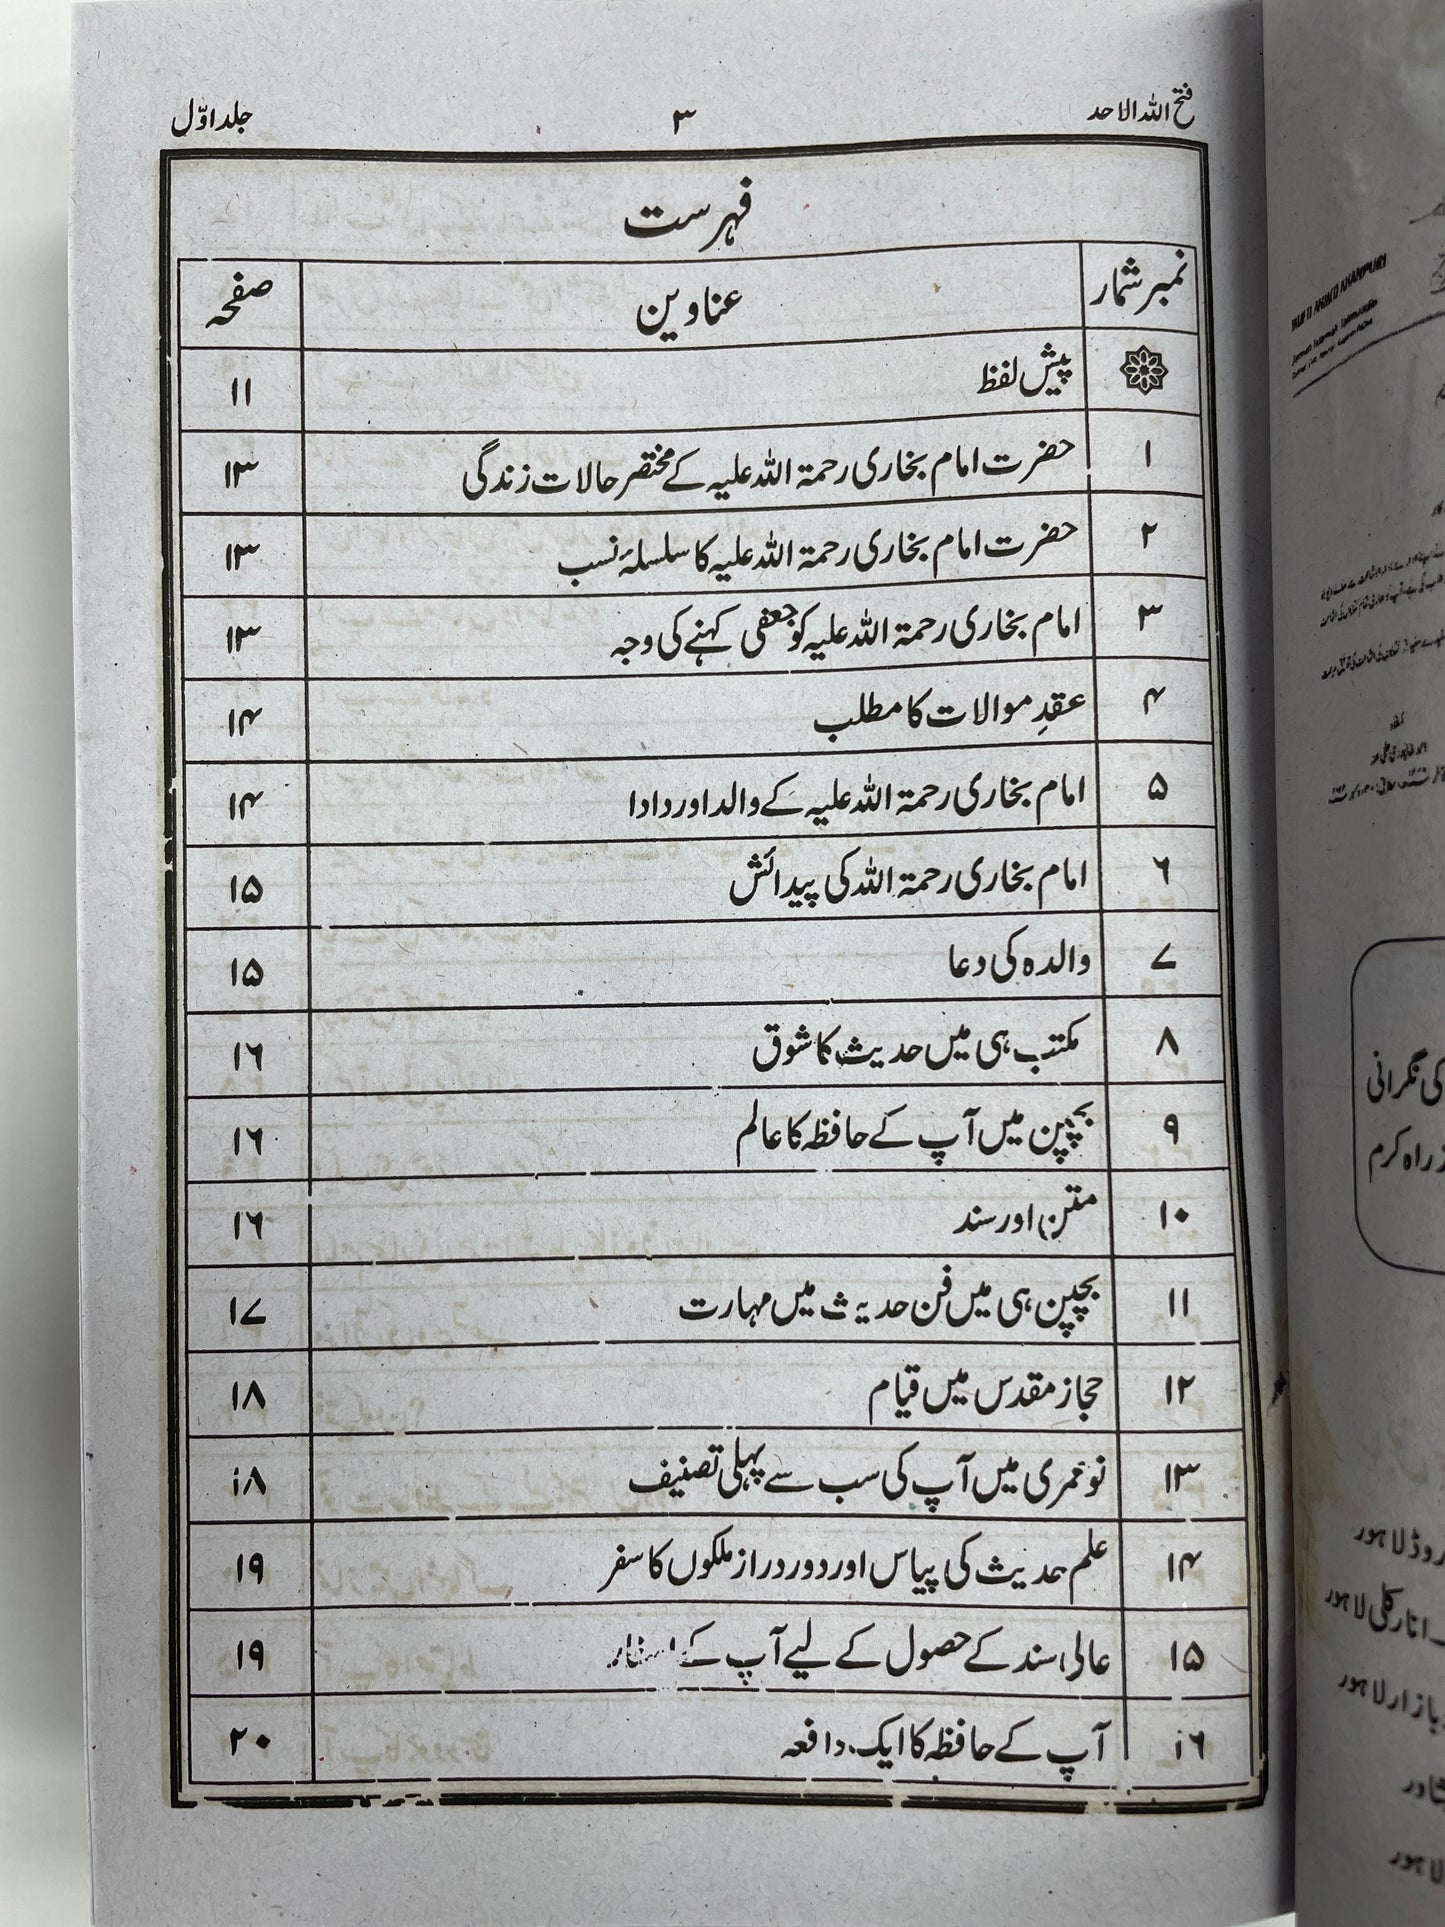 فتح اللہ الاحد ۳ جلد اوّل
فہرست
نمبر شمار عناوین صفحہ
پیش لفظ ۱۱
۱ حضرت امام بخاری رحمۃ اللہ علیہ کے مختصر حالات زندگی ۱۳
۲ حضرت امام بخاری رحمۃ اللہ علیہ کا سلسلۂ نسب ۱۳
۳ امام بخاری رحمۃ اللہ علیہ کو جعفی کہنے کی وجہ ۱۳
۴ عقدِ موالات کا مطلب ۱۴
۵ امام بخاری رحمۃ اللہ علیہ کے والد اور دادا ۱۴
۶ امام بخاری رحمۃ اللہ کی پیدائش ۱۵
۷ والدہ کی دعا ۱۵
۸ مکتب ہی میں حدیث کا شوق ۱۶
۹ بچپن میں آپ کے حافظہ کا عالم ۱۶
۱۰ متن اور سند ۱۶
۱۱ بچپن ہی میں فن حدیث میں مہارت ۱۷
۱۲ حجاز مقدس میں قیام ۱۸
۱۳ نو عمری میں آپ کی سب سے پہلی تصنیف ۱۸
۱۴ علم حدیث کی پیاس اور دور دراز ملکوں کا سفر ۱۹
۱۵ عالی سند کے حصول کے لیے آپ کے اسفار ۱۹
۱۶ آپ کے حافظہ کا ایک واقعہ ۲۰
MUFTI AHMED KHANPURI
کی نگرانی
راہ کرم
روڈ لاہور
انار کلی لاہور
بازار لاہور
لاہور